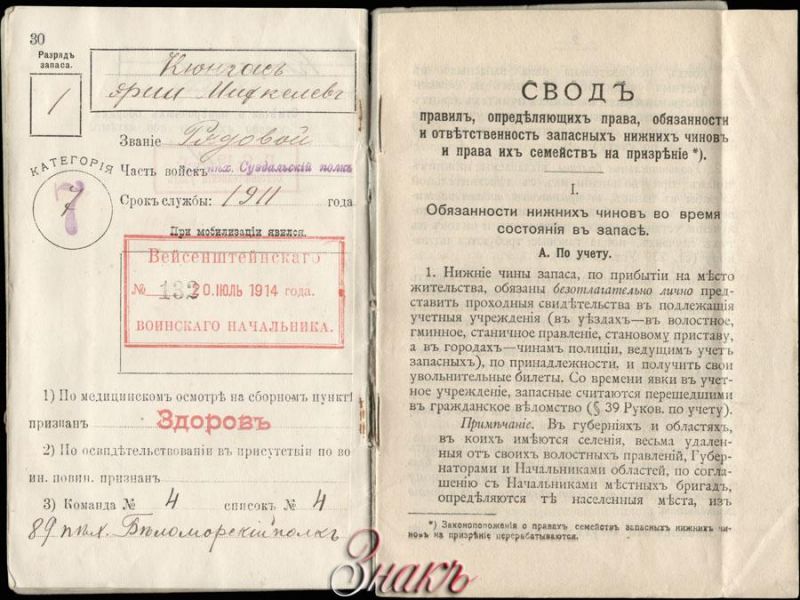 30
Разрядъ
запаса.
1
Кюнгасъ
Званіе Рядовой
КАТЕГОРІЯ
7
Часть войскъ пѣх. Суздальскій полкъ
Срокъ службы: 1911 года
При мобилизаціи явился.
Вейсенштейнскаго
№ 132 20 ІЮЛЬ 1914 года.
ВОИНСКАГО НАЧАЛЬНИКА.
1) По медицинскомъ осмотрѣ на сборномъ пунктѣ
признанъ Здоровъ
2) По освидѣтельствованіи въ присутствіи по во
ин. повин. признанъ
3) Команда № 4 списокъ № 4
89 пѣх. Бѣломорскій полкъ
СВОДЪ
правилъ, опредѣляющихъ права, обязанности
и отвѣтственность запасныхъ нижнихъ чиновъ
и права ихъ семействъ на призрѣніе *).
I.
Обязанности нижнихъ чиновъ во время
состоянія въ запасѣ.
А. По учету.
1. Нижніе чины запаса, по прибытіи на мѣсто
жительства, обязаны безотлагательно лично пред-
ставить проходныя свидѣтельства въ подлежащія
учетныя учрежденія (въ уѣздахъ—въ волостное,
гминное, станичное правленіе, становому приставу,
а въ городахъ—чинамъ полиціи, ведущимъ учетъ
запасныхъ), по принадлежности, и получить свои
увольнительные билеты. Со времени явки въ учет-
ное учрежденіе, запасные считаются перешедшими
въ гражданское вѣдомство (§ 39 Руков. по учету).
Примѣчаніе. Въ губерніяхъ и областяхъ,
въ коихъ имѣются селенія, весьма удален-
ныя отъ своихъ волостныхъ правленій, Губер-
наторами и Начальниками областей, по согла-
шенію съ Начальниками мѣстныхъ бригадъ,
опредѣляются тѣ населенныя мѣста, изъ
*) Законоположенія о правахъ семействъ запасныхъ нижнихъ чи-
новъ на призрѣніе перерабатываются.
Знакъ